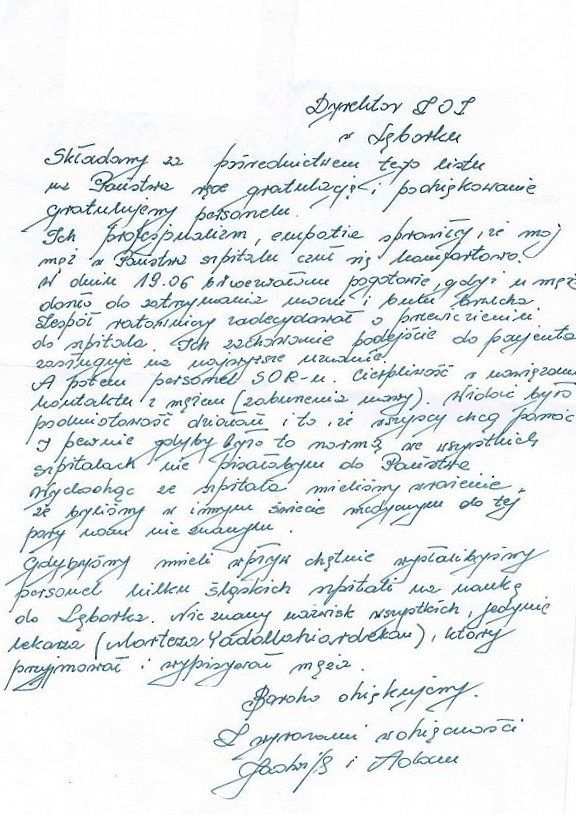 Dyrektor SOS
w Lęborku
Składamy za pośrednictwem tego listu
na Państwa ręce gratulację i podziękowanie
gratulujemy personelu.
Ich profesjonalizm, empatia sprawiły, iż mój
mąż w Państwa szpitalu czuł się komfortowo.
W dniu 19.06 wezwałam pogotowie, gdyż u męż
doszło do zatrzymania moczu i bólu brzucha
Zespół ratowniczy zadecydował o przewiezieniu
do szpitala. Ich zachowanie podejście do pacjenta
zasługuje na najwyższe uznanie.
A potem personel SOR-u. Cierpliwość w nawiązaniu
kontaktu z mężem (zaburzenia mowy). Widać było
podmiotowość działań i to, iż wszyscy chcą pomóc
I pewnie gdyby było to normą we wszystkich
szpitalach nie pisałabym do Państwa
Wychodząc ze szpitala mieliśmy wrażenie,
że byliśmy w innym świecie medycznym do tej
pory nam nie znanym.
Gdybyśmy mieli wpływ chętnie wysłalibyśmy
personel kilku śląskich szpitali na naukę
do Lęborka. Nie znamy nazwisk wszystkich, jedynie
lekarza (Morteza Yadollahiardekan), który
przyjmował i wypisywał męża.
Bardzo dziękujemy.
Z wyrazami wdzięczności
Jadwiga i Adam